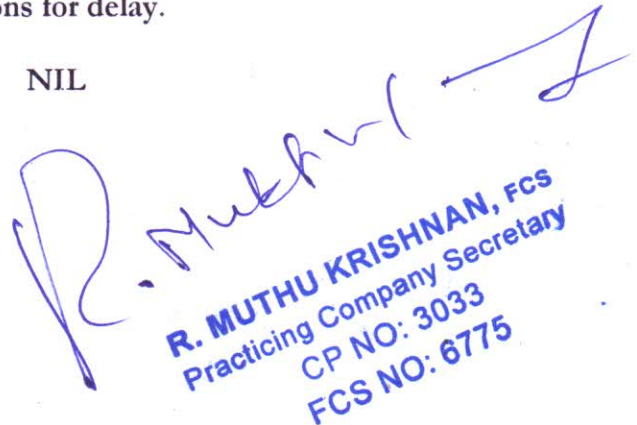 ons for delay.
NIL
R. Muthu
R. MUTHU KRISHNAN, FCS
Practicing Company Secretary
CP NO: 3033
FCS NO: 6775